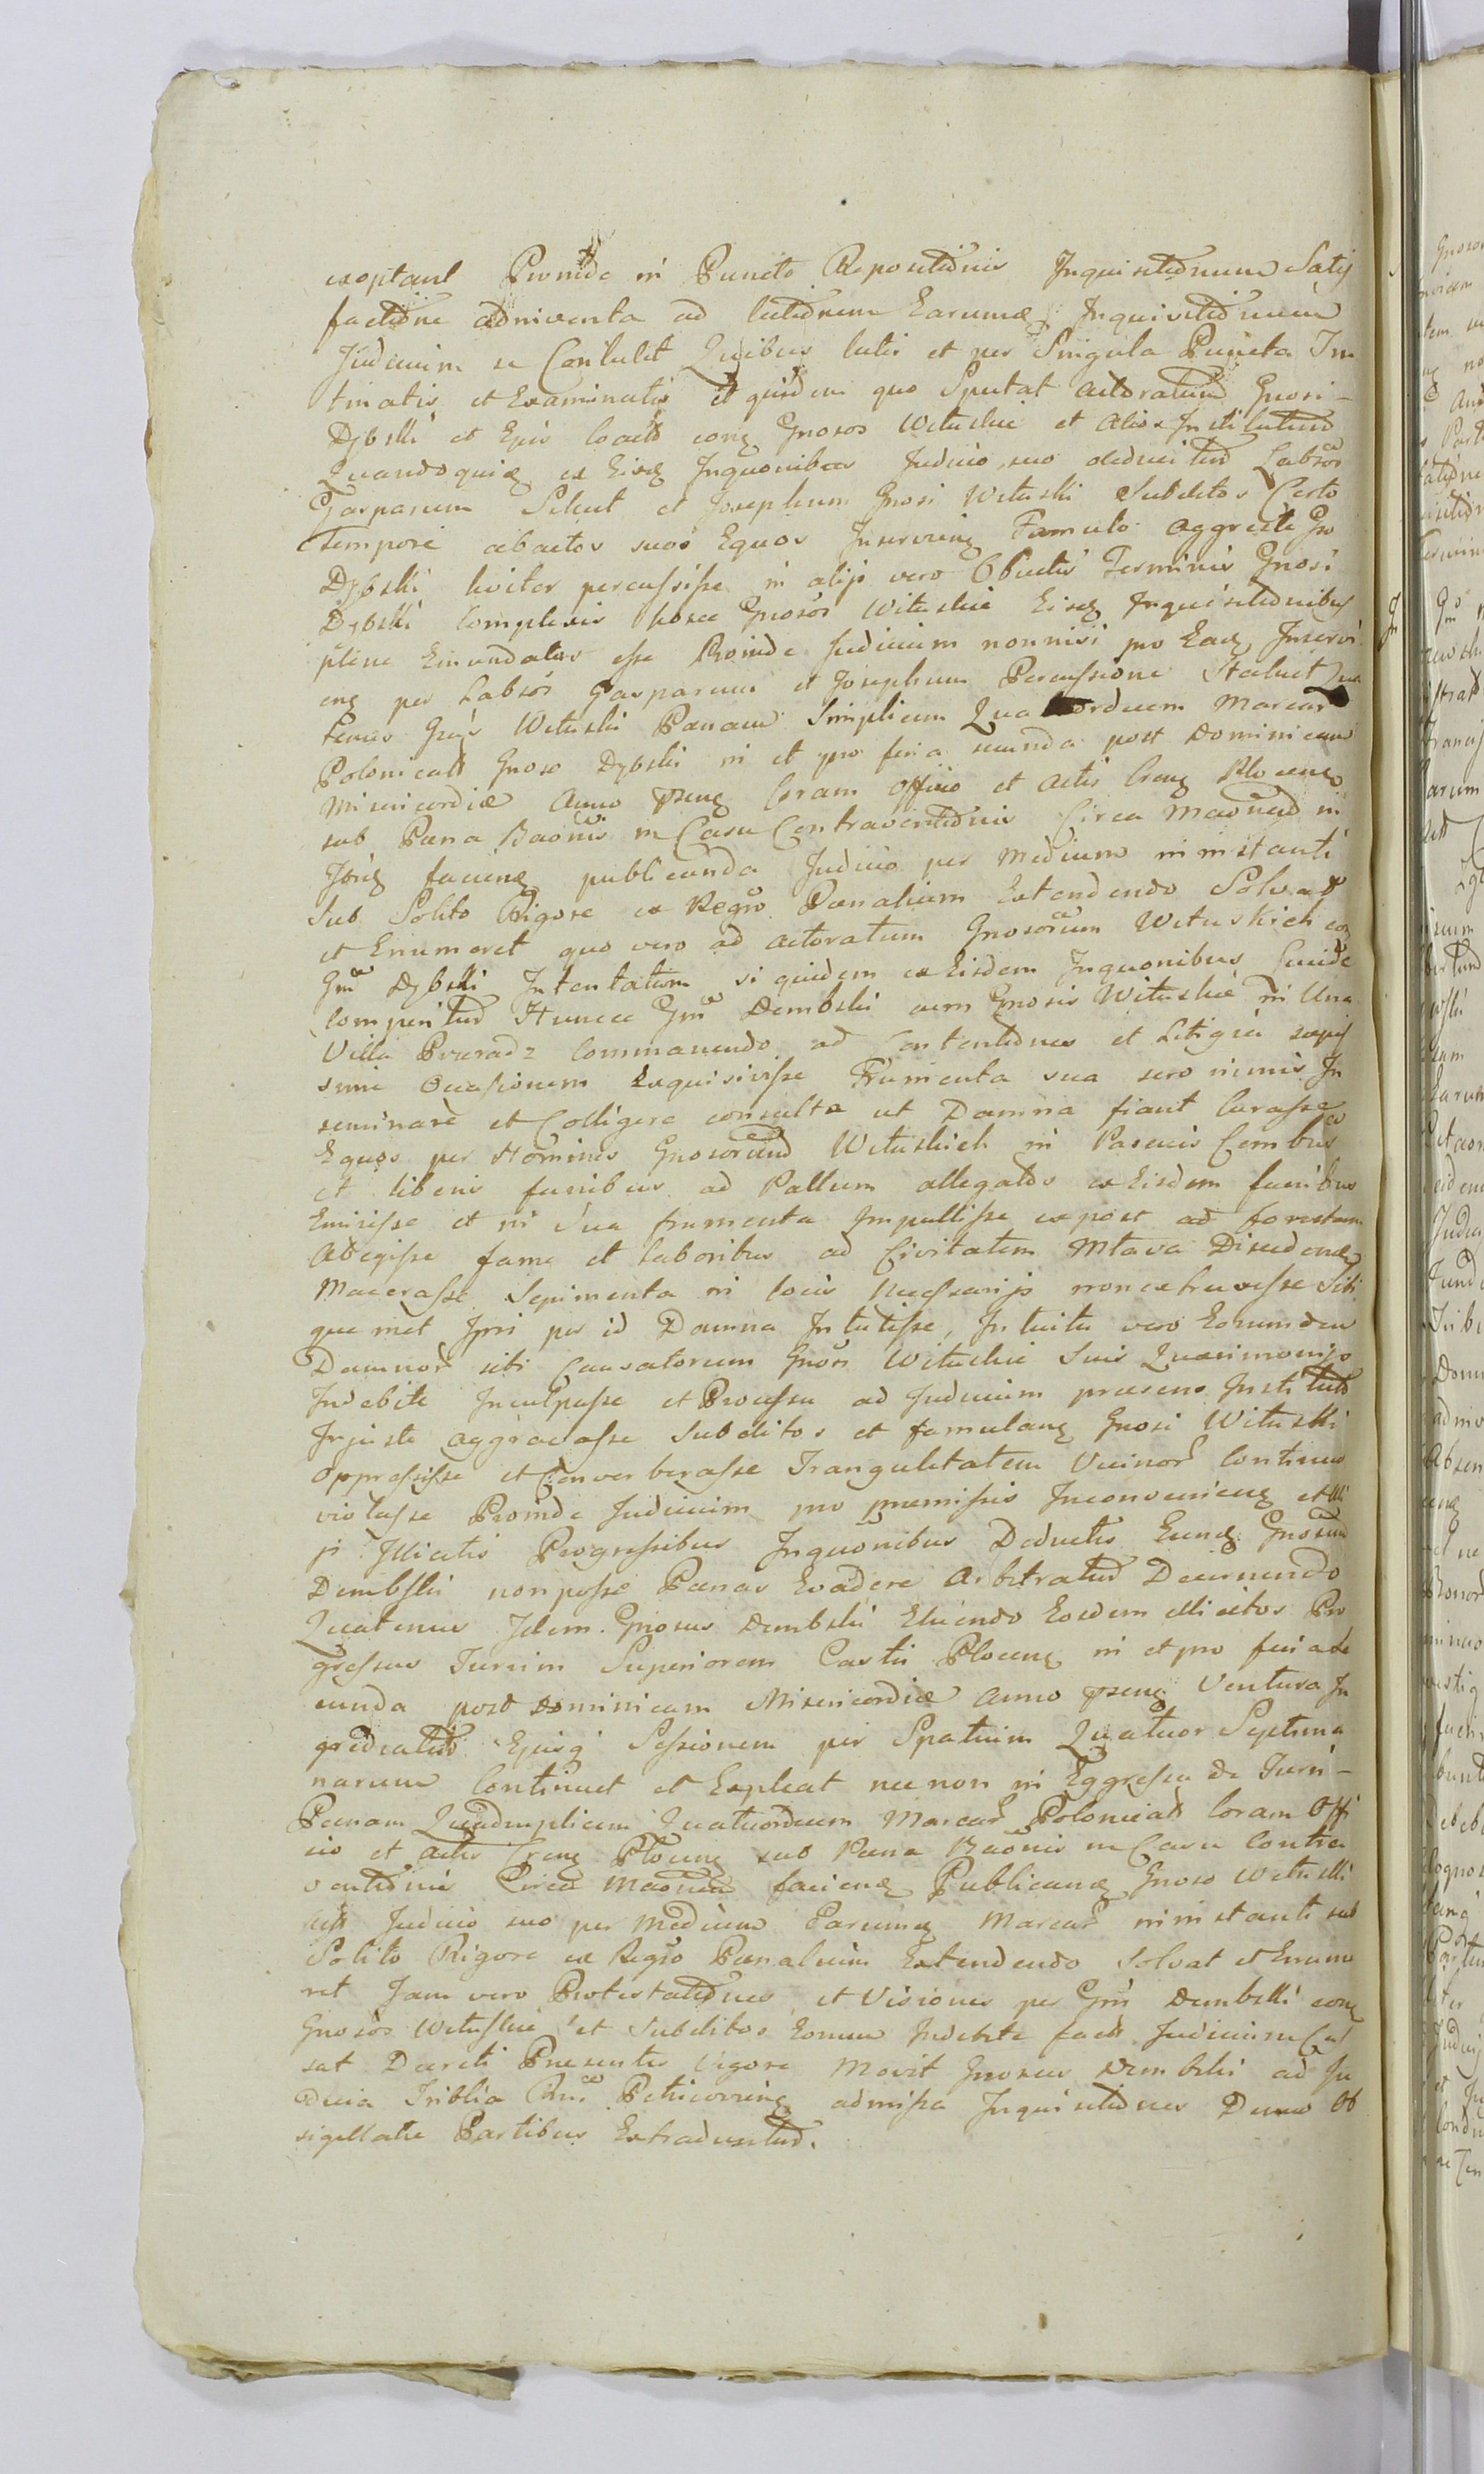 exoptant Proinde in Puncto Repositionis Inquisitionum Satis
factione adinventa ad lectionem Earumq Inquisitionum
Judicium se Contulit Quibus lectis et per Singula Puncta In
tinatis et Examinatis et quidem quo Spectat actoratum Gnosi
Dębski et Ejus locato conq Gnosos Wituskie et Alios Institutum
Quandoquiq ex Eisq Inquonibus Judicio suo deducitur Labsos
Gasparum Szlent et Josephum Gnosi Wituski Subditos Certo
Tempore abactos suos Equos Inserving Famulo aggresti Gso
Dębski leviter percussisse in alijs vero Objectis Terminis Gnosi
Dębski Complexis hosce Gnosos Wituskie Eisq Inquisitionibus
plene Emundatos esse Proinde Judicium nonnisi pro Eaq Inservi
enq per Labsos Gasparum et Josephum Percussione Statuit Qua
tenus Gnus Wituski Pœnam Simplicem Quatuordecem Marcar
Polonicalt Gnoso Dębski in et pro feria secunda post Dominicam
Misericordiæ Anno Pseng Coram Officio et Actis Creng Plocenq
sub Pœna Baonis in Casu Contraventionis Circa Maoned in
Jbig facienq publicanda Judicio per Medium ministanti
Sub Solito Rigore ex Regro Pœnalium Extendendo Solvat
et Enumeret quo vero ad actoratum Gnosorum Wituskich conq
Gnm Dębski Intentatum si quidem ex Eisdem Inquonibus Evide
comperitur Huncce Gnm Dembski cum Gnosis Wituskie in Una
Villa Pruradz Commanendo ad Contentiones et Litigia sæpis
sime Occasionem Exquisivisse Frumenta sua sero nimis In
seminare et Colligere consulto ut Damna fiant Curasse
Equos per Homines Gnosorum Wituskich in Pascuis Cembus
et liberis funibus ad Pallum allegatos ex Eisdem funibus
Emisisse et in Sua frumenta Impullisse expost ad forestam
Abegisse fame et laboribus ad Civitatem Mlava Discedendo
Macerasse Sepimenta in locis Necessarijs non extruxisse Sibi
que met Ipsi per id Damna Intulisse, Intuitu vero Eorumdem
Damnor sibi Causatorum Gnosos Wituskie Suis Quærimonijs
Indebite Inculpasse et Processu ad Judicium præsens Instituto
Injuste Aggravasse Subditos et famulang Gnosi Wituski
oppressisse et Converberasse Tranquilitatem Vicinor Continuo
violasse Proinde Judicium pro præmissis Inconvenienq et Illi
js Illicitis Progressibus Inquonibus Deductis Eunq Gnosum
Dembski non posse Pœnas Evadere Arbitratur Decernendo
Quatenus Idem Gnosus Dembski Eluendo Eosdem illicitos Pro
gressus Turrim Superiorem Castri Plocenq in et pro feria se
cunda post Dominicam Misericordiæ Anno Pseng Ventura In
grediatur Ejusq Sessionem per Spatium Quatuor Septima
narum Continuet et Expleat nec non in Eggressu de Turri
Pœnam Quadruplicem Quatuordecem Marcar Polonicalt Coram Offi
cio et Actis Creng Plocenq sub Pœna Baonis in Casu Contra
ventionis Circa Maoned facienq Publicanq Gnoso Wituski
Judicio suo per Medium Earumq Marcar ministanti sub
Solito Rigore ex Regro Pœnalium Extendendo solvat et Enume
ret Jam vero Protestationes et Visiones per Gnm Dembski conq
Gnosos Wituskie et Subditos Eorum Indebite factt Judicium Cas
sat Decreti Præsentis Vigore Movit Gnosus Dembski ad Ju
dicia Triblia Petricoving admissa Inquisitiones Domo Ob
sigillatæ Partibus Extraduntur.